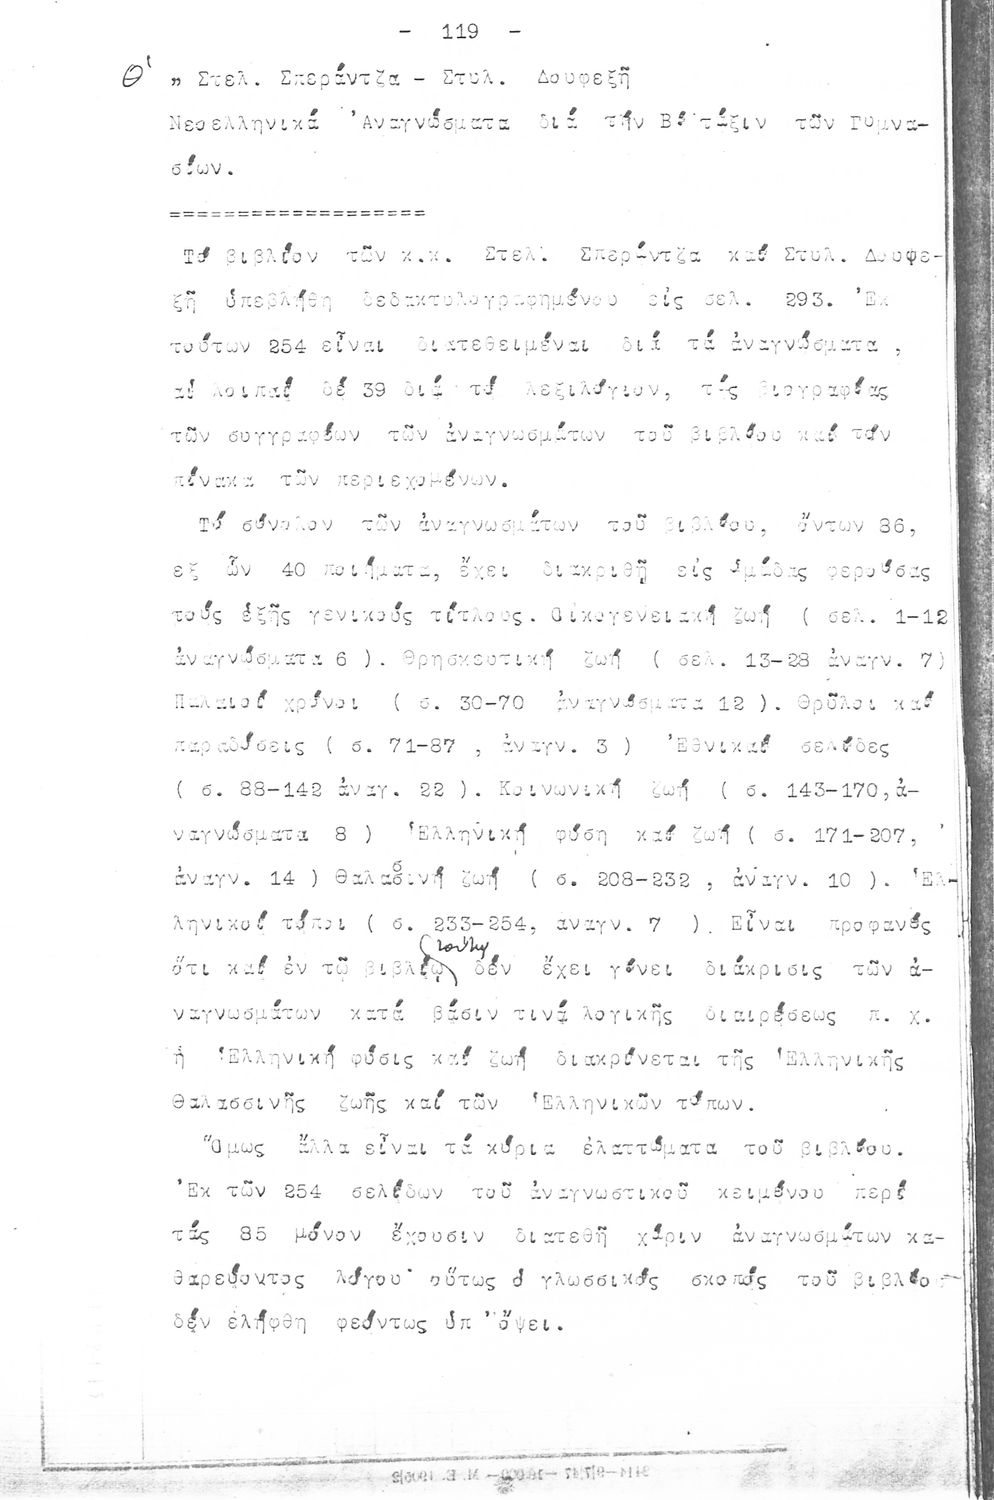 - 119 -
Θ' " Στελ. Σπεράντζα - Στυλ. Δουφεξῆ
Νεοελληνικά Ἀναγνώσματα διά τήν Β΄ τάξιν τῶν Γυμνα-
σίων.
===================
Τό βιβλίον τῶν κ.κ. Στελ. Σπεράντζα καί Στυλ. Δουφε-
ξῆ ὑπεβλήθη δεδακτυλογραφημένον εἰς σελ. 293. Ἐκ
τούτων 254 εἶναι διατεθειμέναι διά τά ἀναγνώσματα ,
αἱ λοιπαί δέ 39 διά τό λεξιλόγιον, τάς βιογραφίας
τῶν συγγραφέων τῶν ἀναγνωσμάτων τοῦ βιβλίου καί τόν
πίνακα τῶν περιεχομένων.
Τό σύνολον τῶν ἀναγνωσμάτων τοῦ βιβλίου, ὄντων 86,
εξ ὧν 40 ποιήματα, ἔχει διακριθῆ εἰς ὁμάδας φερούσας
τούς ἑξῆς γενικούς τίτλους. Οἰκογενειακή ζωή ( σελ. 1-12
ἀναγνώσματα 6 ). Θρησκευτική ζωή ( σελ. 13-28 ἀναγν. 7)
Παλαιοί χρόνοι ( σ. 30-70 ἀναγνώσματα 12 ). Θρῦλοι καί
παραδόσεις ( σ. 71-87 , ἀναγν. 3 ) Ἐθνικαί σελίδες
( σ. 88-142 ἀναγ. 22 ). Κοινωνική ζωή ( σ. 143-170,ἀ-
ναγνώσματα 8 ) Ἑλληνική φύση καί ζωή ( σ. 171-207,
ἀναγν. 14 ) Θαλασσινή ζωή ( σ. 208-232 , ἀναγν. 10 ). Ἑλ-
ληνικοί τόποι ( σ. 233-254, αναγν. 7 ). Εἶναι προφανές
τούτῳ
ὅτι καί ἐν τῷ βιβλίῳ δέν ἔχει γίνει διάκρισις τῶν ἀ-
ναγνωσμάτων κατά βάσιν τινά λογικῆς διαιρέσεως π. χ.
ἡ Ἑλληνική φύσις καί ζωή διακρίνεται τῆς Ἑλληνικῆς
Θαλασσινῆς ζωῆς καί τῶν Ἑλληνικῶν τόπων.
Ὅμως ἄλλα εἶναι τά κύρια ἐλαττώματα τοῦ βιβλίου.
Ἐκ τῶν 254 σελίδων τοῦ ἀναγνωστικοῦ κειμένου περί
τάς 85 μόνον ἔχουσιν διατεθῆ χάριν ἀναγνωσμάτων κα-
θαρεύοντος λόγου· οὕτως ὁ γλωσσικός σκοπός τοῦ βιβλίο
δέν ἐλήφθη φεόντως ὑπ 'ὄψει.